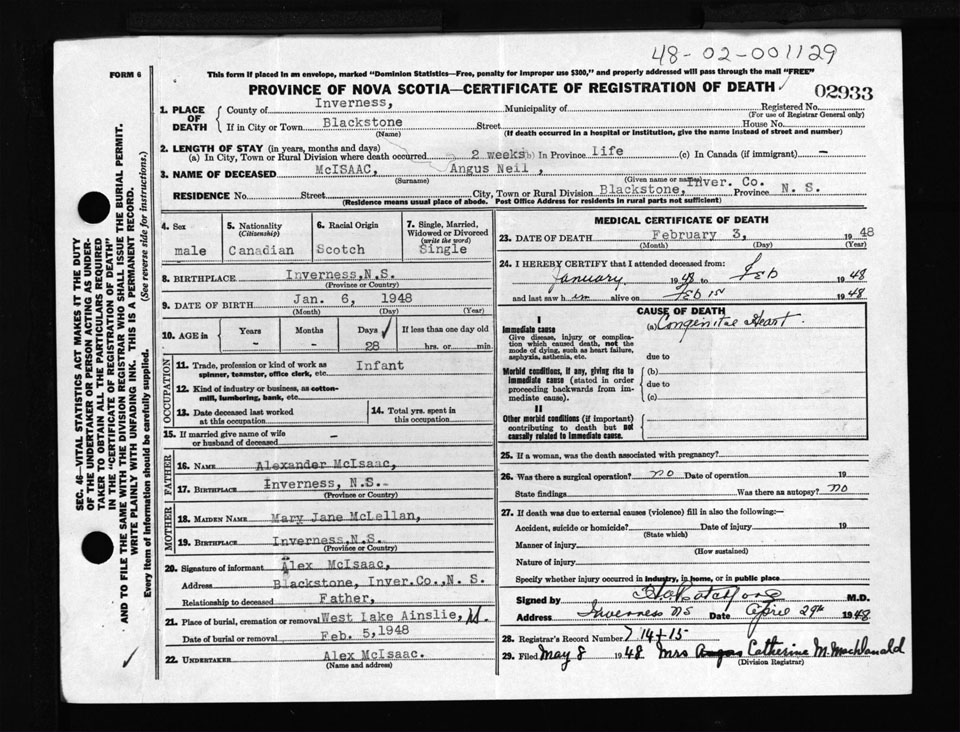 48-02-001129
FORM 6
This form if placed in an envelope, marked "Dominion Statistics—Free, penalty for improper use $300," and properly addressed will pass through the mail "FREE"
PROVINCE OF NOVA SCOTIA—CERTIFICATE OF REGISTRATION OF DEATH
02933
SEC. 46—VITAL STATISTICS ACT MAKES IT THE DUTY
OF THE UNDERTAKER OR PERSON ACTING AS UNDER-
TAKER TO OBTAIN ALL THE PARTICULARS REQUIRED
IN THE "CERTIFICATE OF REGISTRATION OF DEATH"
AND TO FILE THE SAME WITH THE DIVISION REGISTRAR WHO SHALL ISSUE THE BURIAL PERMIT.
WRITE PLAINLY WITH UNFADING INK. THIS IS A PERMANENT RECORD.
Every item of information should be carefully supplied. (See reverse side for instructions.)
1. PLACE OF DEATH
County of Inverness, Municipality of Registered No.
(For use of Registrar General only)
If in City or Town Blackstone Street House No.
(Name) (If death occurred in a hospital or institution, give the name instead of street and number)
2. LENGTH OF STAY (in years, months and days)
(a) In City, Town or Rural Division where death occurred 2 weeks (b) In Province life (c) In Canada (if immigrant) —
3. NAME OF DECEASED McISAAC, Angus Neil,
(Surname) (Given name or names)
RESIDENCE No. Street City, Town or Rural Division Blackstone, Inver. Co. Province N. S.
(Residence means usual place of abode. Post Office Address for residents in rural parts not sufficient)
4. Sex
male
5. Nationality
(Citizenship)
Canadian
6. Racial Origin
Scotch
7. Single, Married,
Widowed or Divorced
(write the word)
Single
8. BIRTHPLACE Inverness,N.S.
(Province or Country)
9. DATE OF BIRTH Jan. 6, 1948
(Month) (Day) (Year)
10. AGE in
Years
-
Months
-
Days
28
If less than one day old
hrs. or min
OCCUPATION
11. Trade, profession or kind of work as Infant
spinner, teamster, office clerk, etc.
12. Kind of industry or business, as cotton-
mill, lumbering, bank, etc.
13. Date deceased last worked
at this occupation
14. Total yrs. spent in
this occupation
15. If married give name of wife
or husband of deceased -
FATHER
16. NAME Alexander McIsaac,
17. BIRTHPLACE Inverness, N.S.-
(Province or Country)
MOTHER
18. MAIDEN NAME Mary Jane McLellan,
19. BIRTHPLACE Inverness,N.S.
(Province or Country)
20. Signature of informant Alex McIsaac,
Address Blackstone, Inver.Co.,N. S.
Relationship to deceased Father,
21. Place of burial, cremation or removal West Lake Ainslie,
Date of burial or removal Feb. 5,1948
22. UNDERTAKER Alex McIsaac.
(Name and address)
MEDICAL CERTIFICATE OF DEATH
23. DATE OF DEATH February 3, 1948
(Month) (Day) (Year)
24. I HEREBY CERTIFY that I attended deceased from:
January 1948 to Feb 1948
and last saw h im alive on Feb 1st 1948
CAUSE OF DEATH
I
Immediate cause
Give disease, injury or complica-
tion which caused death, not the
mode of dying, such as heart failure,
asphyxia, asthenia, etc.
(a) Congenital Heart.
due to
Morbid conditions, if any, giving rise to
immediate cause (stated in order
proceeding backwards from im-
mediate cause).
(b)
due to
(c)
II
Other morbid conditions (if important)
contributing to death but not
causally related to immediate cause.
25. If a woman, was the death associated with pregnancy?
26. Was there a surgical operation? no Date of operation 19
State findings Was there an autopsy? no
27. If death was due to external causes (violence) fill in also the following:—
Accident, suicide or homicide? Date of injury 19
(State which)
Manner of injury
(How sustained)
Nature of injury
Specify whether injury occurred in industry, in home, or in public place
Signed by M.D.
Address Inverness NS Date April 29th 1948
28. Registrar's Record Number 14+15
29. Filed May 8 1948 Mrs Catherine M. MacDonald
(Division Registrar)